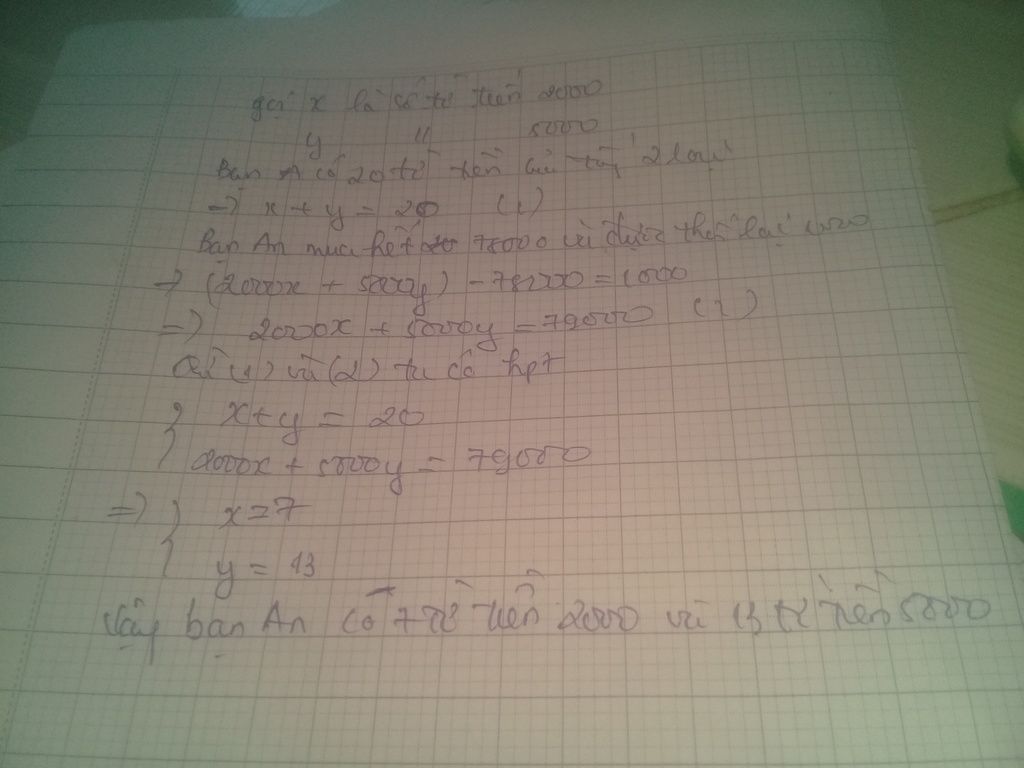 gọi x là số tờ tiền 2000
y 11 5000
Bạn A có 20 tờ tiền cả 2 loại
=> x + y = 20 (1)
Bạn An mua hết 78000 và được thối lại 1000
=> (2000x + 5000y) - 78000 = 1000
=> 2000x + 5000y = 79000 (2)
Từ (1) và (2) ta có hpt
{ x + y = 20
2000x + 5000y = 79000
=> { x = 7
y = 13
Vậy bạn An có 7 tờ tiền 2000 và 13 tờ tiền 5000